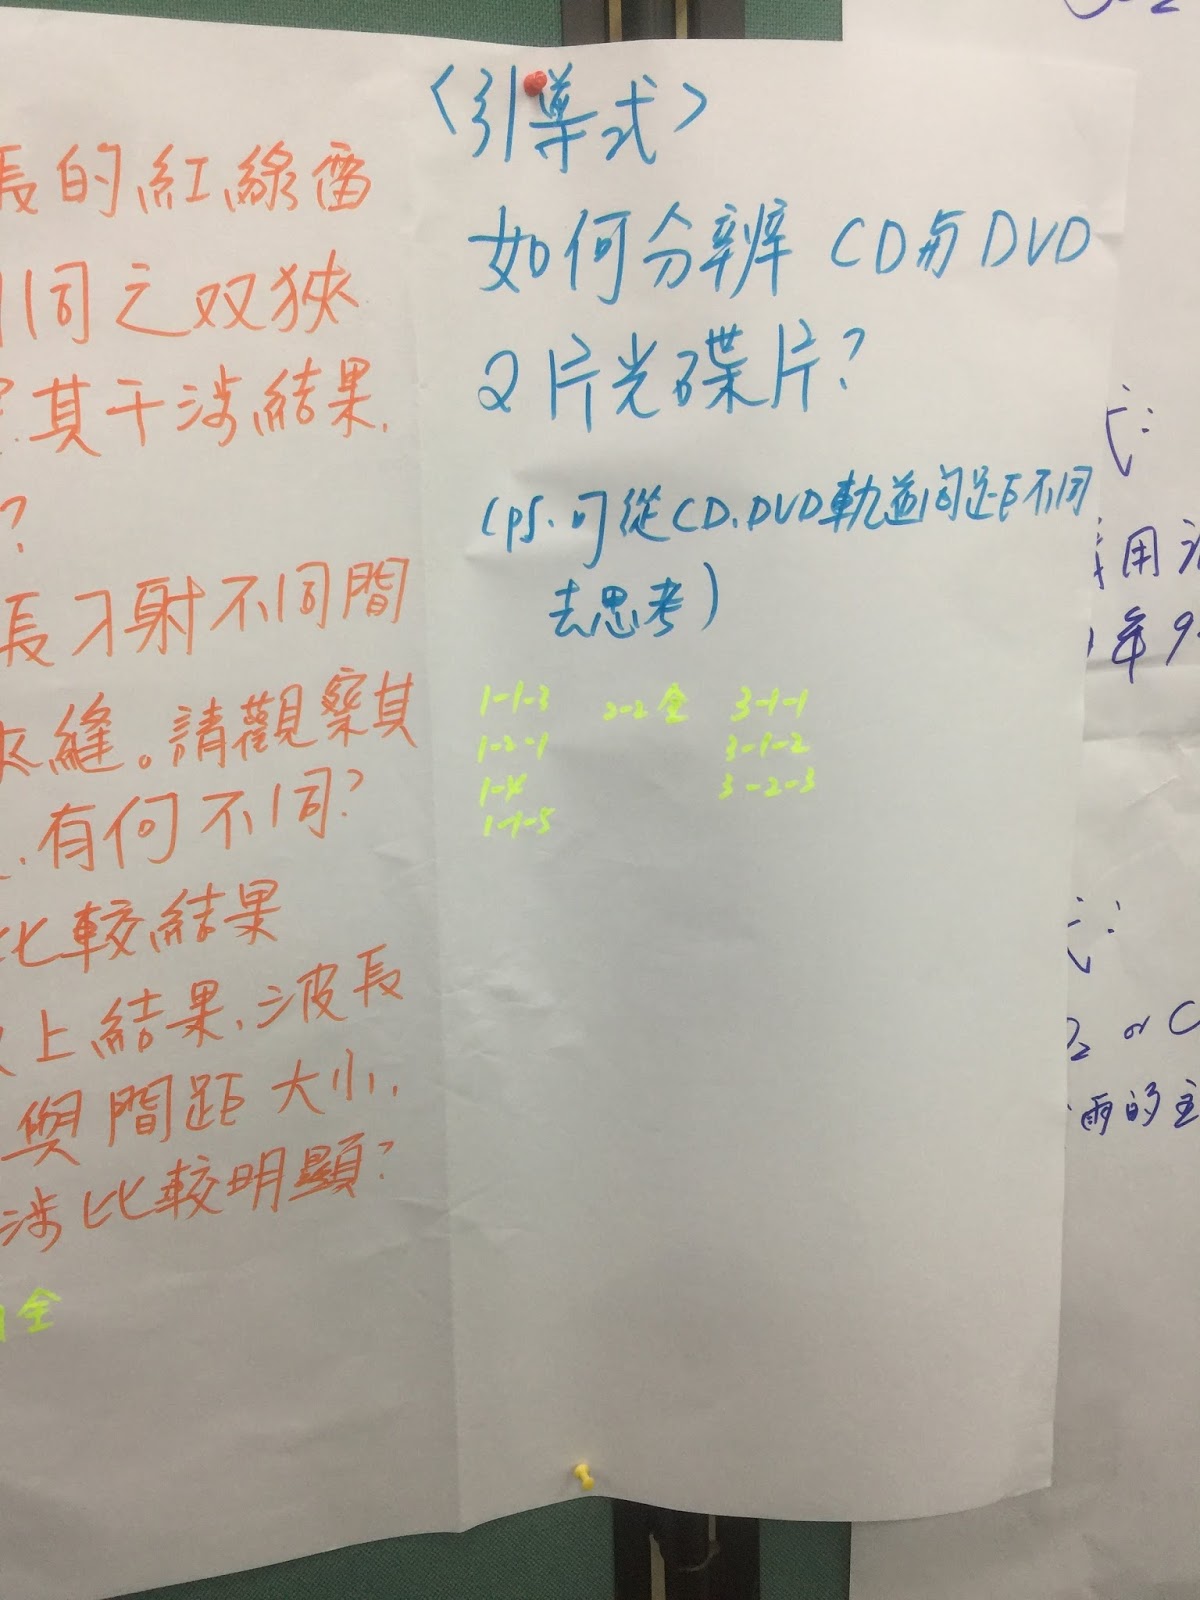 長的紅線雷
同之双狹
其干涉結果.
?
長刁射不同間
夾縫。請觀察其
有何不同?
比較結果
上結果,波長
與間距大小.
涉比較明顯?
全
<引導式>
如何分辨 CD与DVD
2片光碟片?
(ps.可從CD.DVD軌道间距不同
去思考)
1-1-3 2-2全 3-1-1
1-2-1 3-1-2
1-4 3-2-3
1-1-5
式:
用
年9
式:
O2 or C
雨的主